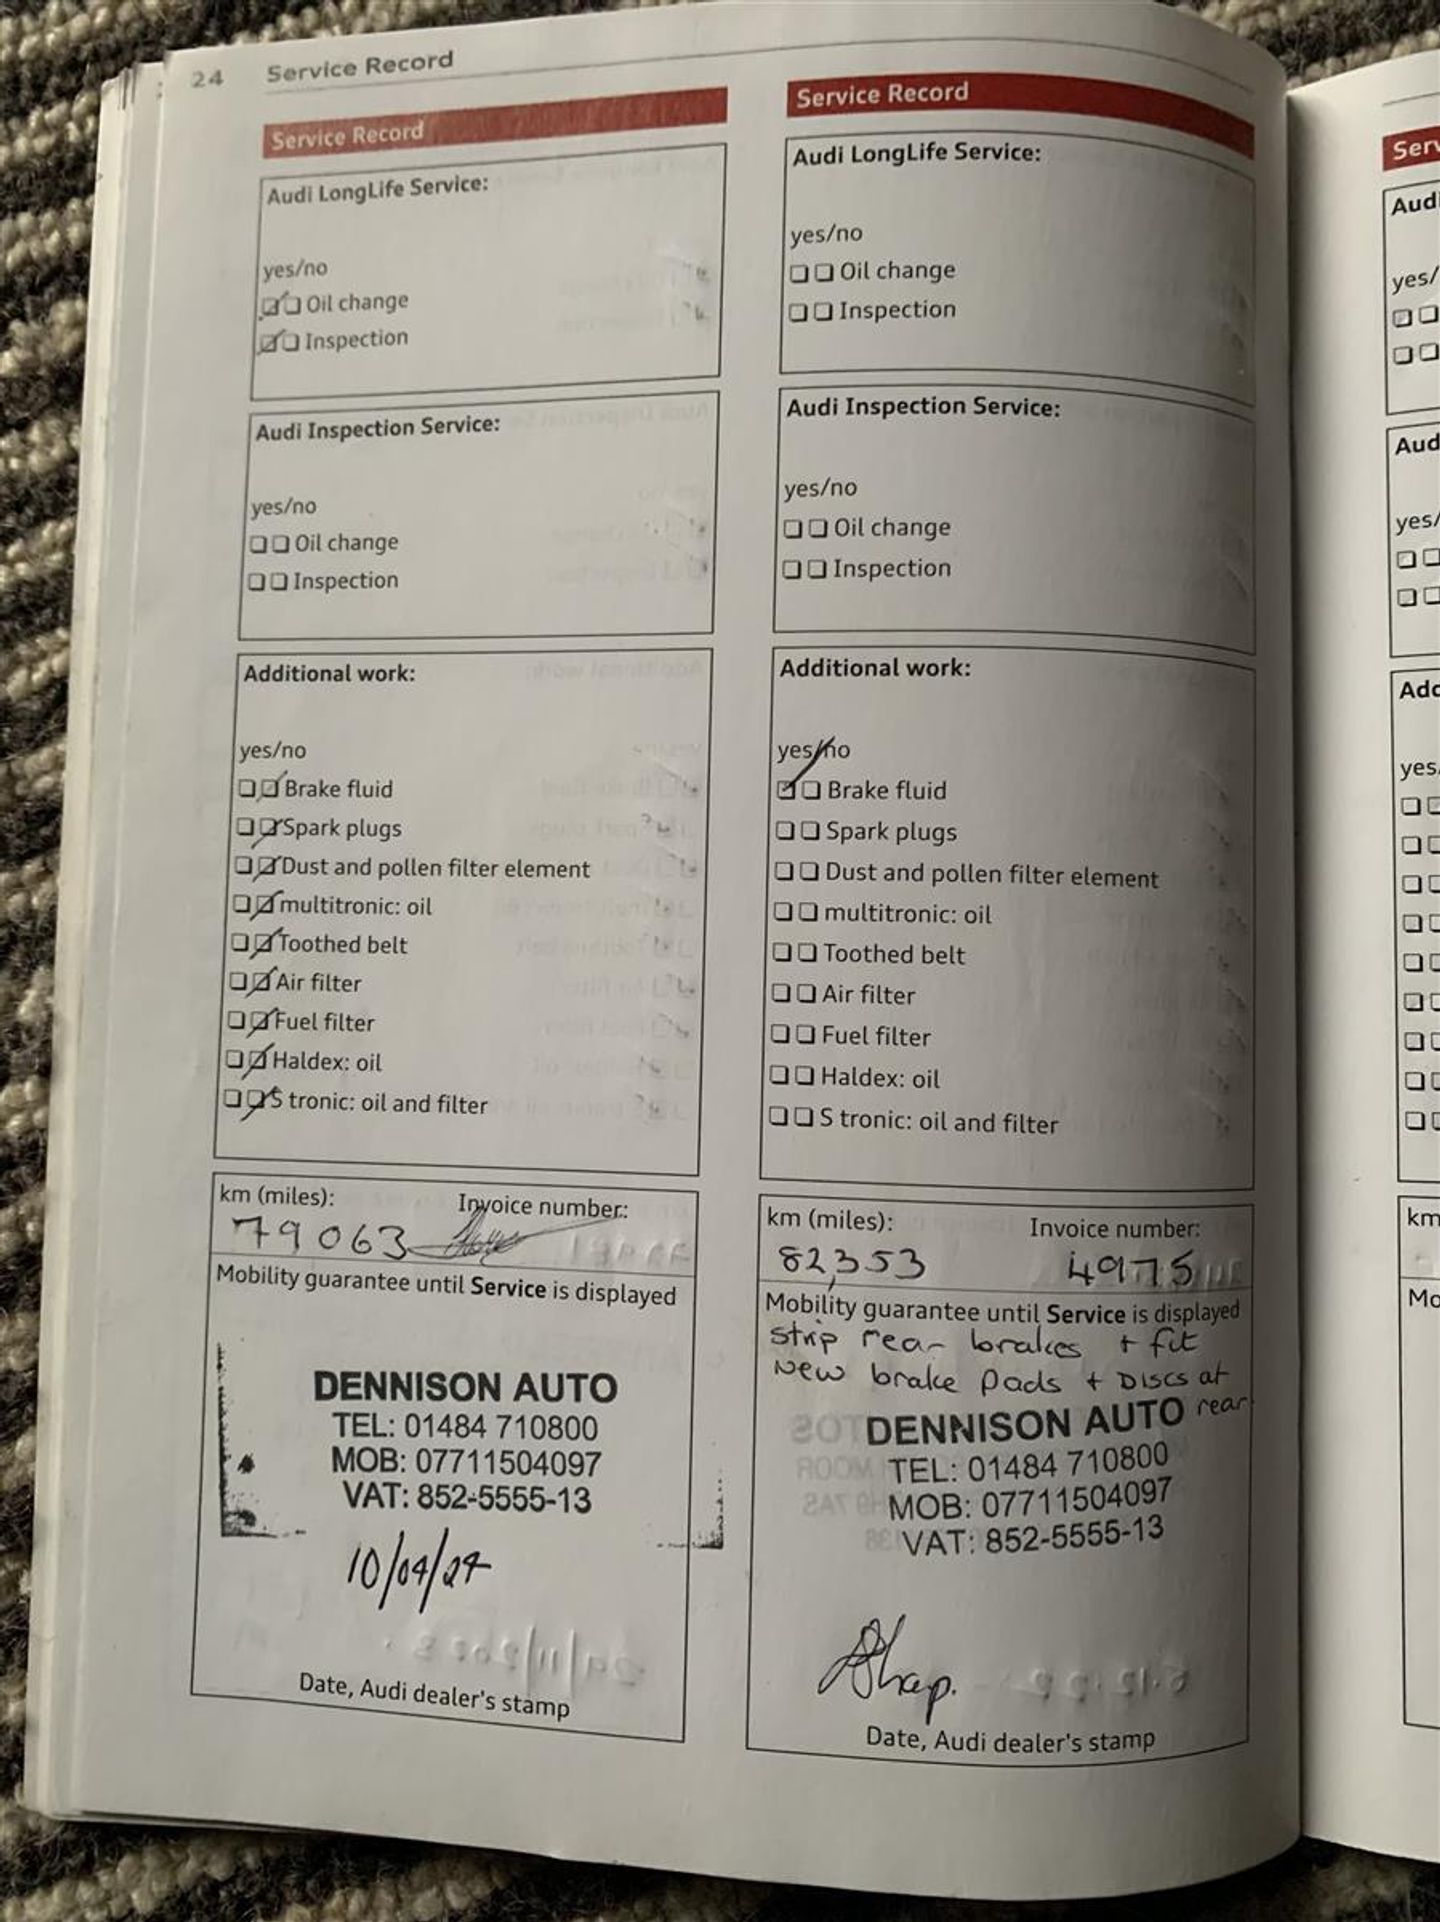 24 Service Record
Service Record
Audi LongLife Service:
yes/no
Oil change
Inspection
Audi Inspection Service:
yes/no
Oil change
Inspection
Additional work:
yes/no
Brake fluid
Spark plugs
Dust and pollen filter element
multitronic: oil
Toothed belt
Air filter
Fuel filter
Haldex: oil
S tronic: oil and filter
km (miles): Invoice number:
79063
Mobility guarantee until Service is displayed
DENNISON AUTO
TEL: 01484 710800
MOB: 07711504097
VAT: 852-5555-13
10/04/24
Date, Audi dealer's stamp
Service Record
Audi LongLife Service:
yes/no
Oil change
Inspection
Audi Inspection Service:
yes/no
Oil change
Inspection
Additional work:
yes/no
Brake fluid
Spark plugs
Dust and pollen filter element
multitronic: oil
Toothed belt
Air filter
Fuel filter
Haldex: oil
S tronic: oil and filter
km (miles): Invoice number:
82,353 4975
Mobility guarantee until Service is displayed
strip rear brakes + fit
New brake pads + Discs at
rear
DENNISON AUTO
TEL: 01484 710800
MOB: 07711504097
VAT: 852-5555-13
Date, Audi dealer's stamp
Serv
Audi
yes/
Aud
yes/
Add
yes/
km
Mo